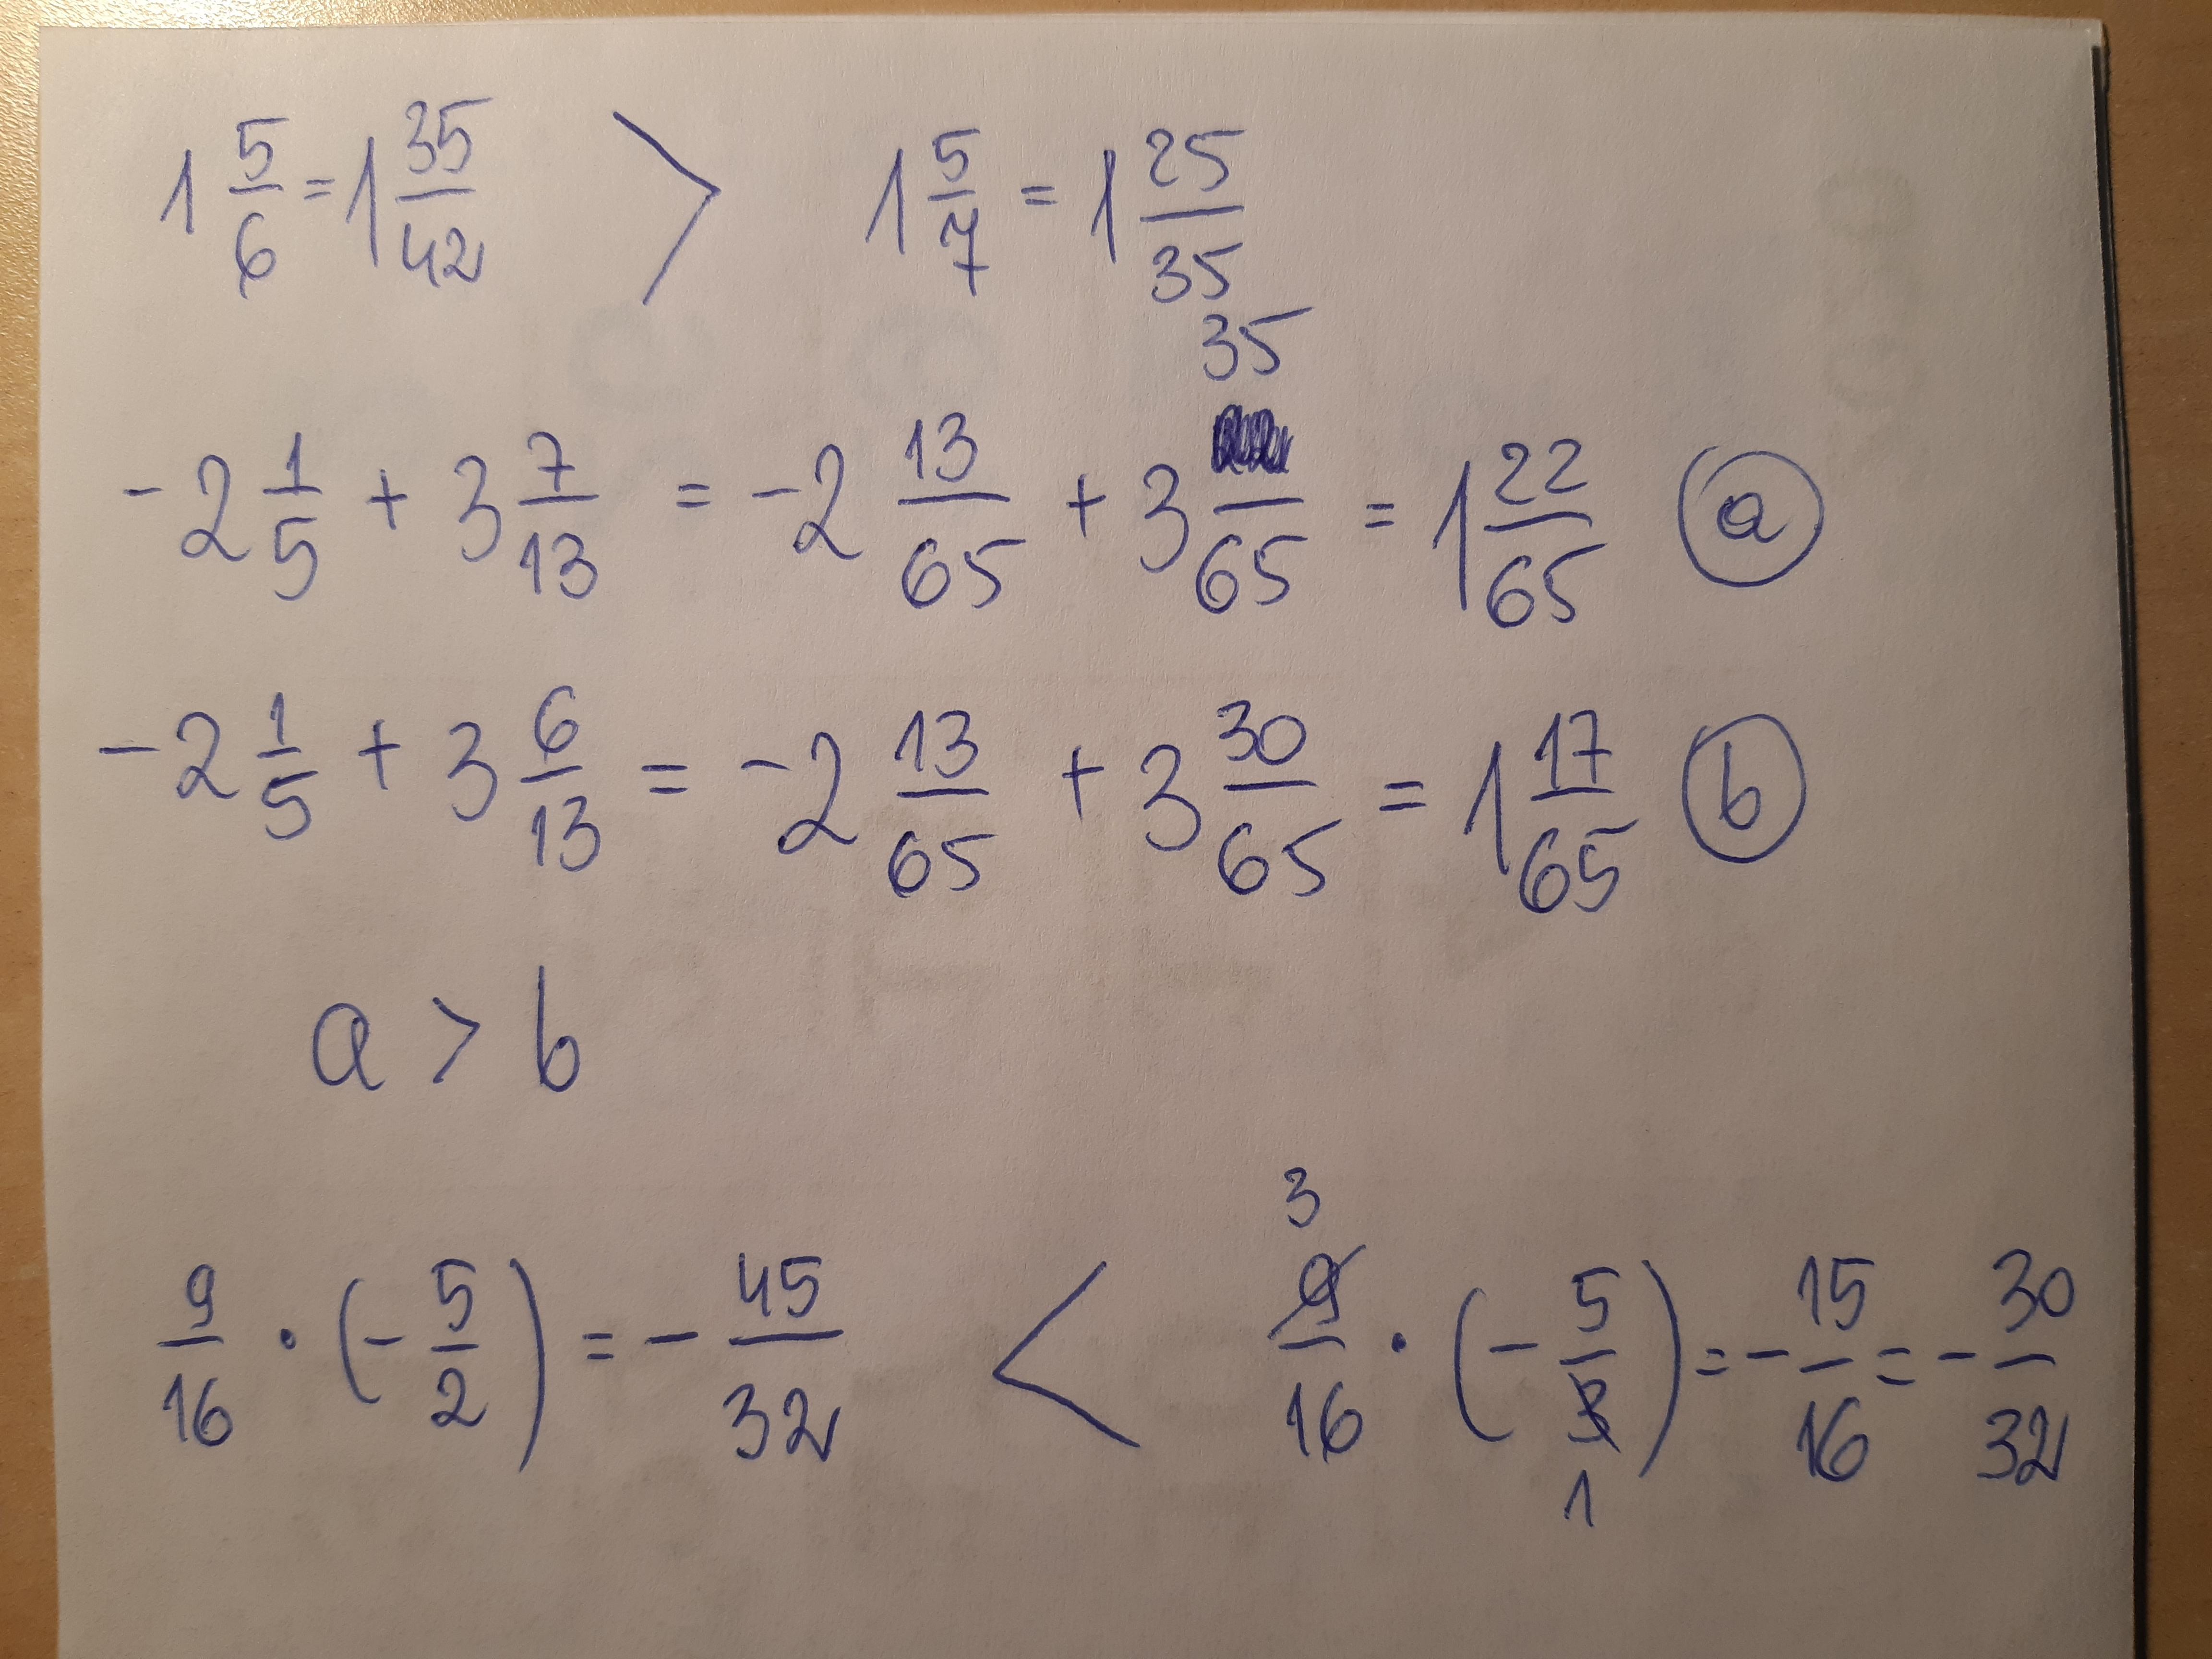 1 5/6 = 1 35/42 > 1 5/7 = 1 25/35
-2 1/5 + 3 7/13 = -2 13/65 + 3 35/65 = 1 22/65 a
-2 1/5 + 3 6/13 = -2 13/65 + 3 30/65 = 1 17/65 b
a > b
9/16 · (-5/2) = -45/32 < 3 9/16 · (-5/3) 1 = -15/16 = -30/32